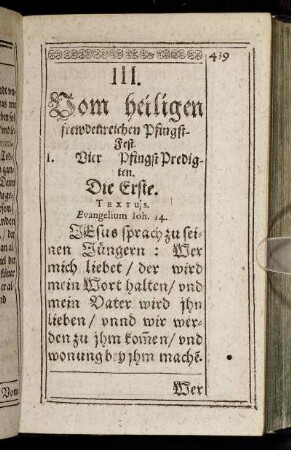 439
III.
Vom heiligen
frewdenreichen Pfingst-
Fest.
1. Vier Pfingst Predig-
ten.
Die Erste.
TEXTUS.
Evangelium Ioh. 14.
JEsus sprach zu sei-
nen Jüngern : Wer
mich liebet / der wird
mein Wort halten / vnd
mein Vater wird jhn
lieben / vnnd wir wer-
den zu jhm kom̃en / vnd
wonung bey jhm machẽ.
Wer
Vom